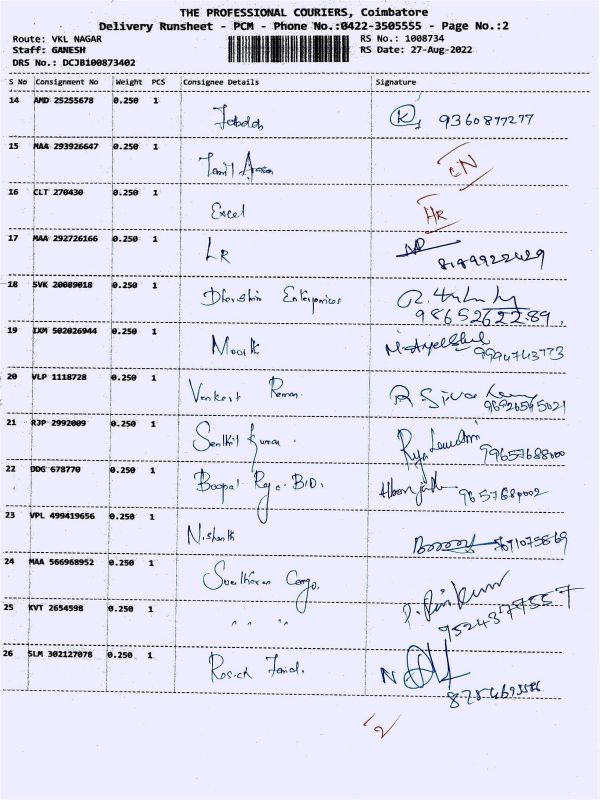 THE PROFESSIONAL COURIERS, Coimbatore
Delivery Runsheet - PCM - Phone No.:0422-3505555 - Page No.:2
Route: VKL NAGAR RS No.: 1008734
Staff: GANESH RS Date: 27-Aug-2022
DRS No.: DCJB100873402
S No Consignment No Weight PCS Consignee Details Signature
14 AMD 25255678 0.250 1
K 9360877277
15 MAA 293926647 0.250 1
Tamil CN
16 CLT 270430 0.250 1
Excel HR
17 MAA 292726166 0.250 1
LR
18 SVK 20089018 0.250 1
Enterprices
9865262289
19 IXM 502026944 0.250 1
9994743773
20 VLP 1118728 0.250 1
Venkat Raman R Siva
21 RJP 2992009 0.250 1
Senthil Kumar
22 ODG 678770 0.250 1
Boopal Raja
23 VPL 499419656 0.250 1
Nishanth
24 MAA 566968952 0.250 1
Cargo.
25 KVT 2654598 0.250 1
" " "
9524377557
26 SLM 302127078 0.250 1
N
2